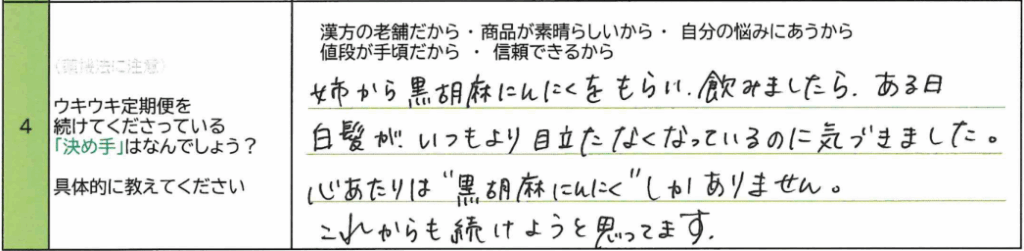 4
ウキウキ定期便を
続けてくださっている
「決め手」はなんでしょう？
具体的に教えてください
漢方の老舗だから・商品が素晴らしいから・ 自分の悩みにあうから
値段が手頃だから ・ 信頼できるから
姉から黒胡麻にんにくをもらい、飲みましたら、ある日
白髪が、いつもより目立たなくなっているのに気づきました。
心あたりは"黒胡麻にんにく"しかありません。
これからも続けようと思ってます.